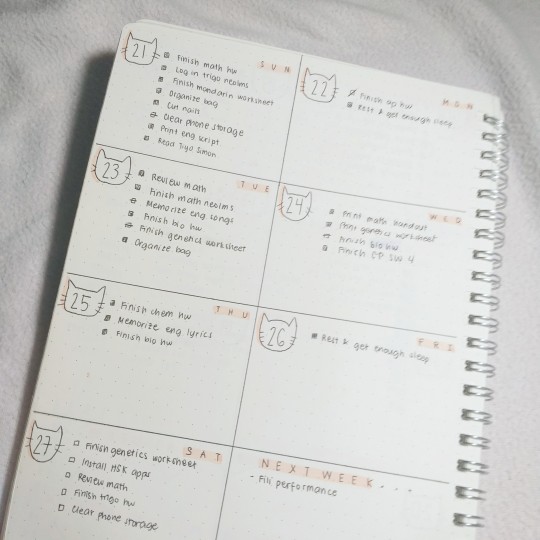 21
SUN
Finish math hw
Log in trigo neolms
Finish mandarin worksheet
Organize bag
Cut nails
Clear phone storage
Print eng script
Read Tiyo Simon
22
MON
Finish up hw
Rest & get enough sleep
23
TUE
Review math
Finish math neolms
Memorize eng songs
Finish bio hw
Finish genetics worksheet
Organize bag
24
WED
Print math handout
Print genetics worksheet
Finish bio hw
Finish CP SW 4
25
THU
Finish chem hw
Memorize eng lyrics
Finish bio hw
26
FRI
Rest & get enough sleep
27
SAT
Finish genetics worksheet
Install HSK apps
Review math
Finish trigo hw
Clear phone storage
NEXT WEEK...
- Fili performance